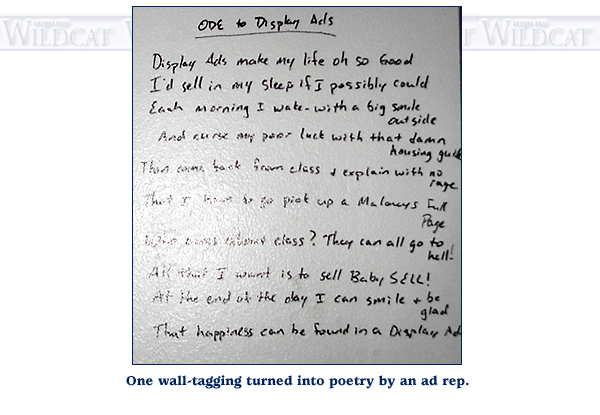 ARIZONA DAILY
WILDCAT
ARIZONA DAILY
WILDCAT
ODE to Display Ads
Display Ads make my life oh so Good
I'd sell in my sleep if I possibly could
Each morning I wake with a big smile
outside
And curse my poor luck with that damn
housing guide
Then come back from class & explain with no
rage
That I have to go pick up a Maloneys Full
Page
Who cares about class? They can all go to
hell!
All that I want is to sell Baby SELL!
At the end of the day I can smile & be
glad
That happiness can be found in a Display Ad.
One wall-tagging turned into poetry by an ad rep.